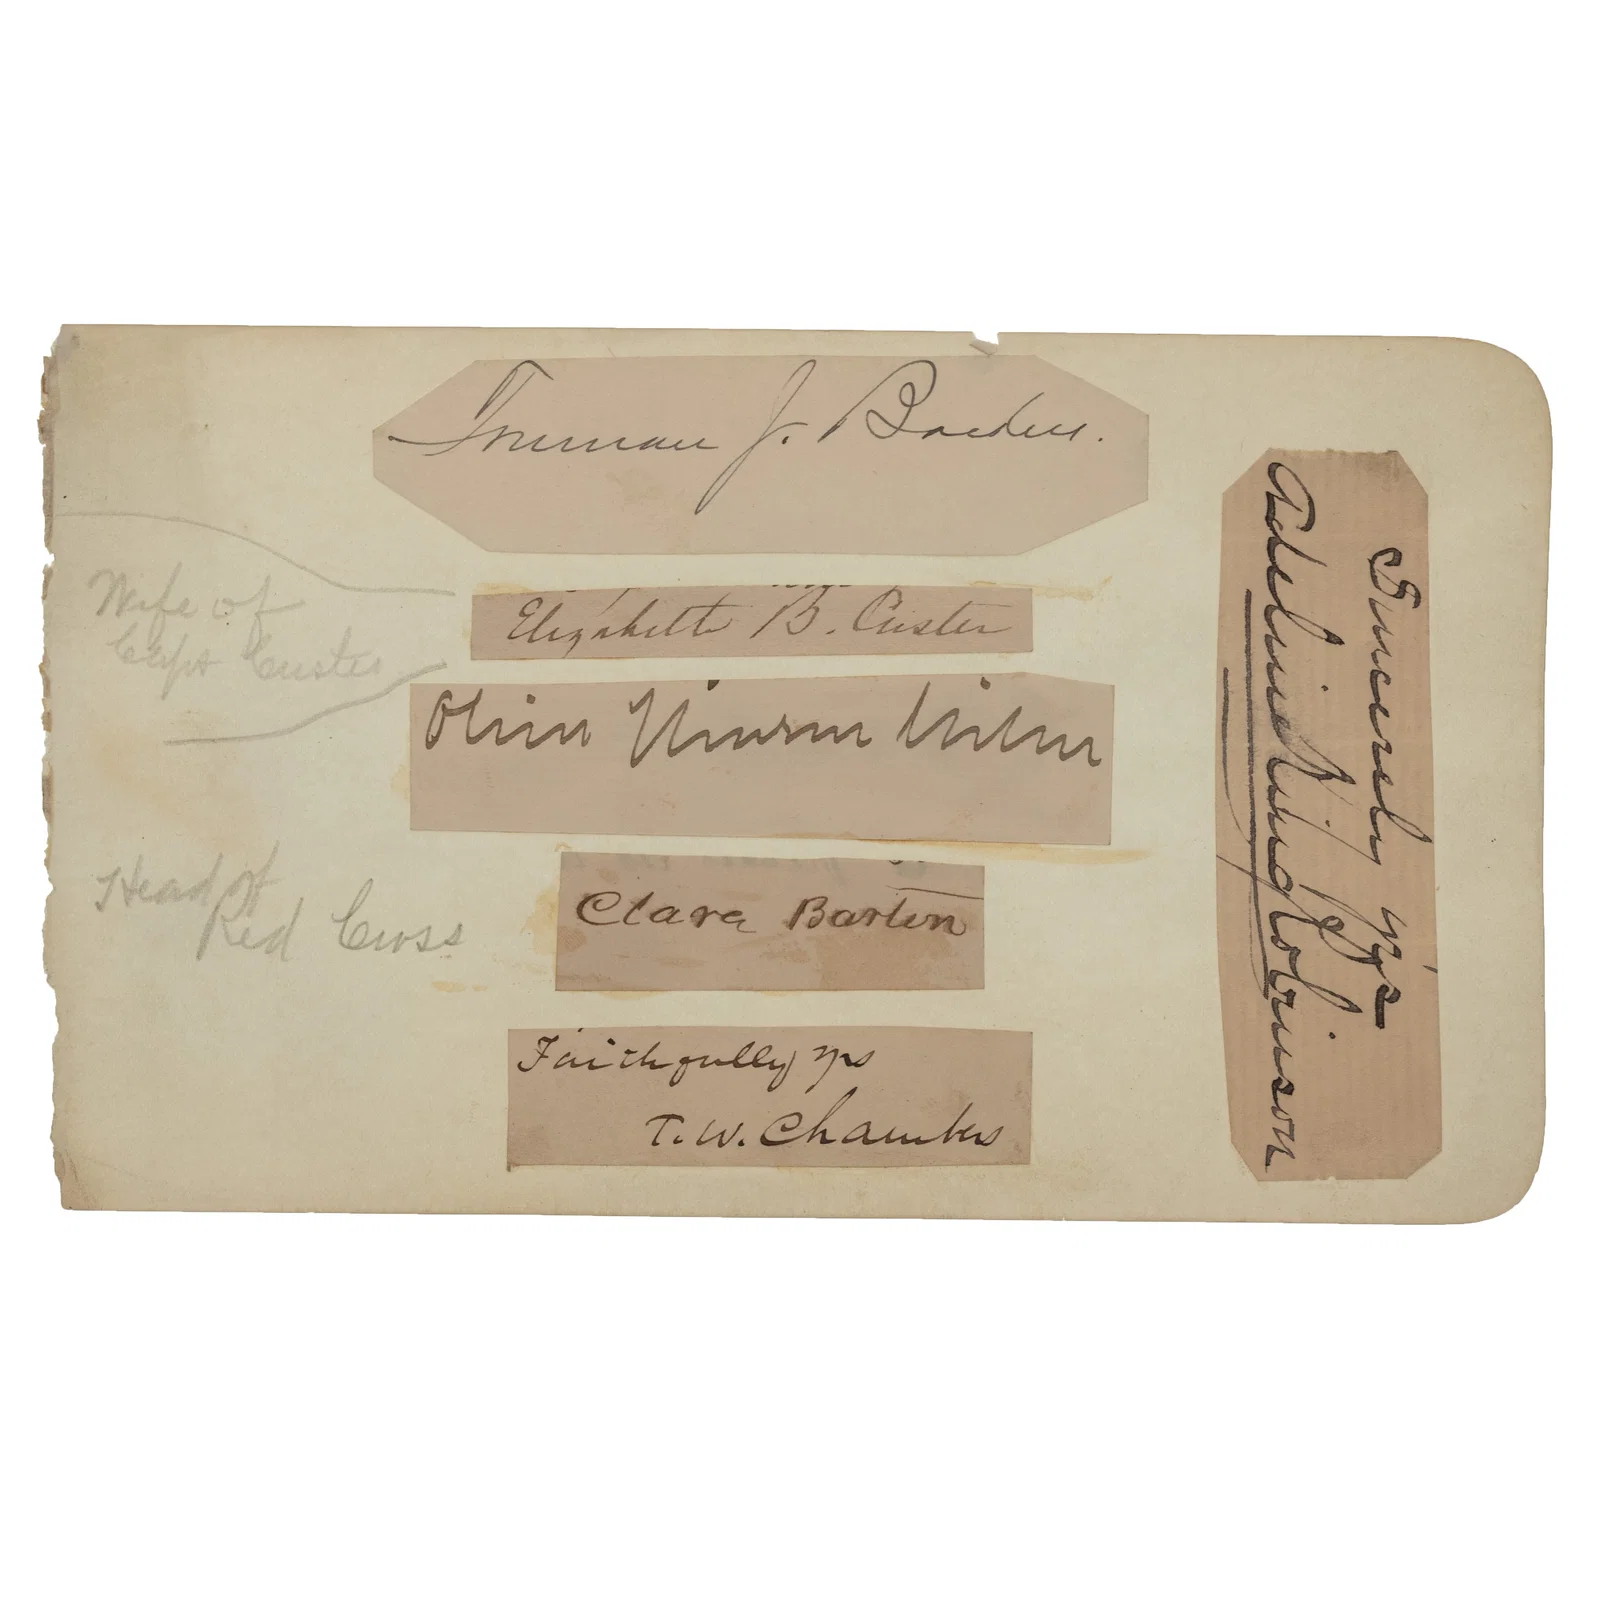 Truman J. Backus.
Wife of
Capt Custer
Elizabeth B. Custer
Olive Thorne Miller
Head of
Red Cross
Clara Barton
Faithfully yrs
T. W. Chambers
Sincerely yrs
Adeline King Robinson